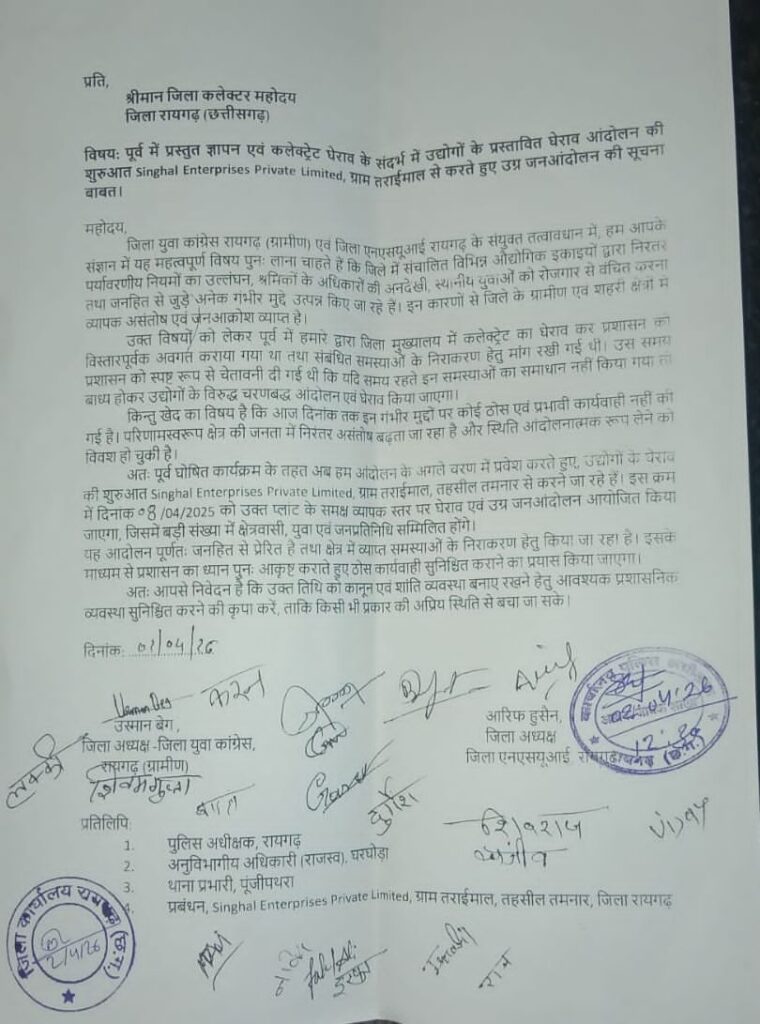 प्रति,
श्रीमान जिला कलेक्टर महोदय
जिला रायगढ़ (छत्तीसगढ़)
विषय: पूर्व में प्रस्तुत ज्ञापन एवं कलेक्ट्रेट घेराव के संदर्भ में उद्योगों के प्रस्तावित घेराव आंदोलन की
शुरुआत Singhal Enterprises Private Limited, ग्राम तराईमाल से करते हुए उग्र जनआंदोलन की सूचना
बाबत।
महोदय,
जिला युवा कांग्रेस रायगढ़ (ग्रामीण) एवं जिला एनएसयूआई रायगढ़ के संयुक्त तत्वावधान में, हम आपके
संज्ञान में यह महत्वपूर्ण विषय पुनः लाना चाहते हैं कि जिले में संचालित विभिन्न औद्योगिक इकाइयों द्वारा निरंतर
पर्यावरणीय नियमों का उल्लंघन, श्रमिकों के अधिकारों की अनदेखी, स्थानीय युवाओं को रोजगार से वंचित करना
तथा जनहित से जुड़े अनेक गंभीर मुद्दे उत्पन्न किए जा रहे हैं। इन कारणों से जिले के ग्रामीण एवं शहरी क्षेत्रों में
व्यापक असंतोष एवं जनआक्रोश व्याप्त है।
उक्त विषयों को लेकर पूर्व में हमारे द्वारा जिला मुख्यालय में कलेक्ट्रेट का घेराव कर प्रशासन को
विस्तारपूर्वक अवगत कराया गया था तथा संबंधित समस्याओं के निराकरण हेतु मांग रखी गई थी। उस समय
प्रशासन को स्पष्ट रूप से चेतावनी दी गई थी कि यदि समय रहते इन समस्याओं का समाधान नहीं किया गया तो
बाध्य होकर उद्योगों के विरुद्ध चरणबद्ध आंदोलन एवं घेराव किया जाएगा।
किन्तु खेद का विषय है कि आज दिनांक तक इन गंभीर मुद्दों पर कोई ठोस एवं प्रभावी कार्यवाही नहीं की
गई है। परिणामस्वरूप क्षेत्र की जनता में निरंतर असंतोष बढ़ता जा रहा है और स्थिति आंदोलनात्मक रूप लेने को
विवश हो चुकी है।
अतः पूर्व घोषित कार्यक्रम के तहत अब हम आंदोलन के अगले चरण में प्रवेश करते हुए, उद्योगों के घेराव
की शुरुआत Singhal Enterprises Private Limited, ग्राम तराईमाल, तहसील तमनार से करने जा रहे हैं। इस क्रम
में दिनांक 08/04/2025 को उक्त प्लांट के समक्ष व्यापक स्तर पर घेराव एवं उग्र जनआंदोलन आयोजित किया
जाएगा, जिसमें बड़ी संख्या में क्षेत्रवासी, युवा एवं जनप्रतिनिधि सम्मिलित होंगे।
यह आंदोलन पूर्णतः जनहित से प्रेरित है तथा क्षेत्र में व्याप्त समस्याओं के निराकरण हेतु किया जा रहा है। इसके
माध्यम से प्रशासन का ध्यान पुनः आकृष्ट कराते हुए ठोस कार्यवाही सुनिश्चित कराने का प्रयास किया जाएगा।
अतः आपसे निवेदन है कि उक्त तिथि को कानून एवं शांति व्यवस्था बनाए रखने हेतु आवश्यक प्रशासनिक
व्यवस्था सुनिश्चित करने की कृपा करें, ताकि किसी भी प्रकार की अप्रिय स्थिति से बचा जा सके।
दिनांक: 02/04/26
करन
उस्मान बेग,
जिला अध्यक्ष -जिला युवा कांग्रेस,
रायगढ़ (ग्रामीण)
आरिफ हुसैन,
जिला अध्यक्ष
जिला एनएसयूआई
02/04/26
लक्की
शिवमगुप्ता
दुर्गेश
शिवराज
संजीव
प्रतिलिपि:
1. पुलिस अधीक्षक, रायगढ़
2. अनुविभागीय अधिकारी (राजस्व), घरघोड़ा
3. थाना प्रभारी, पूंजीपथरा
4. प्रबंधन, Singhal Enterprises Private Limited, ग्राम तराईमाल, तहसील तमनार, जिला रायगढ़
जिला कार्यालय रायगढ़ (छ.ग.)
2/4/26
राम